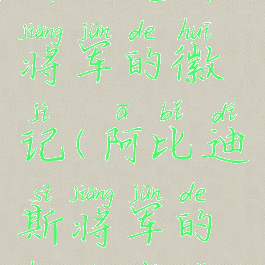 jiāng jūn de huī
将军的徽
jì ā bǐ dí
记(阿比迪
sī jiāng jūn de
斯将军的